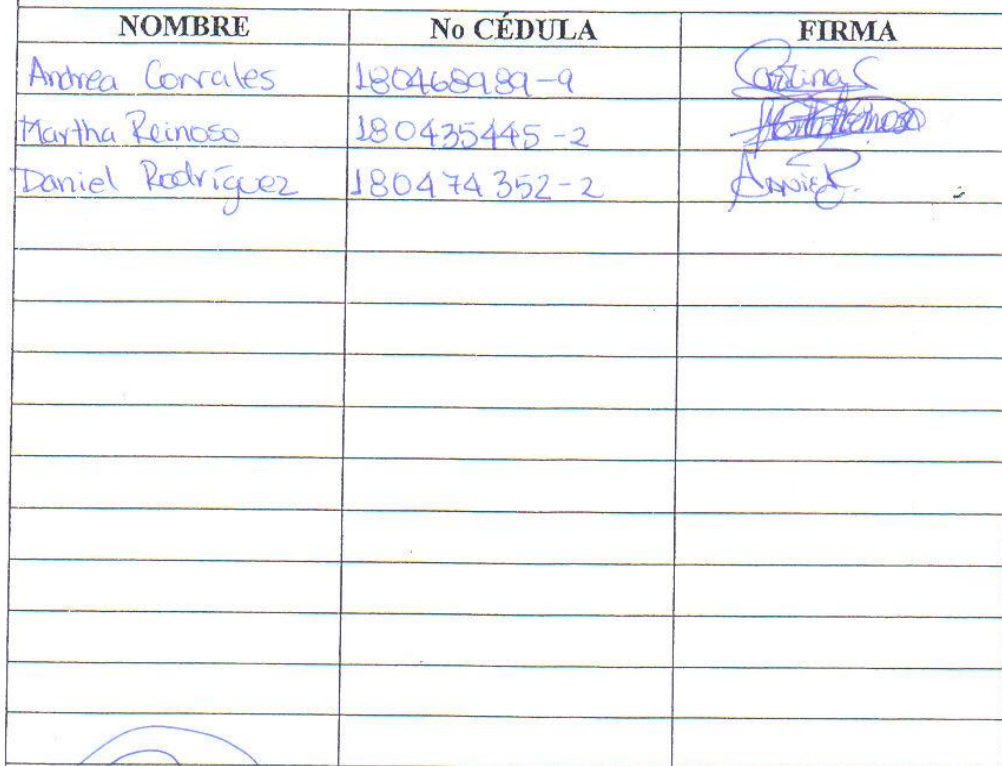 NOMBRE No CÉDULA FIRMA
Andrea Corrales 180468989-9 Carolina C
Martha Reinoso 180435445-2 Martha Reinoso
Daniel Rodríguez 180474352-2 Daniel R.